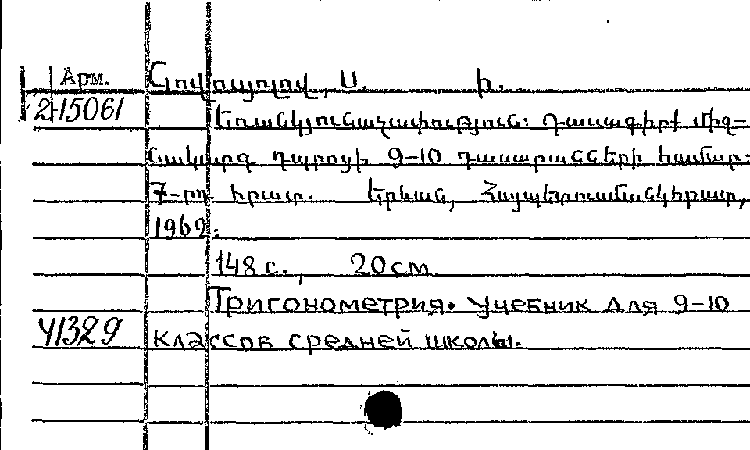 Арм. Նովոսյոլով, Ս. Ի.
2-15061 Եռանկյունաչափություն: Դասագիրք միջ-
նակարգ դպրոցի 9-10 դասարանների համար:
7-րդ հրատ. Երևան, Հայպետուսմանկհրատ,
1962:
148 с., 20 см
Тригонометрия. Учебник для 9-10
41329 классов средней школы.